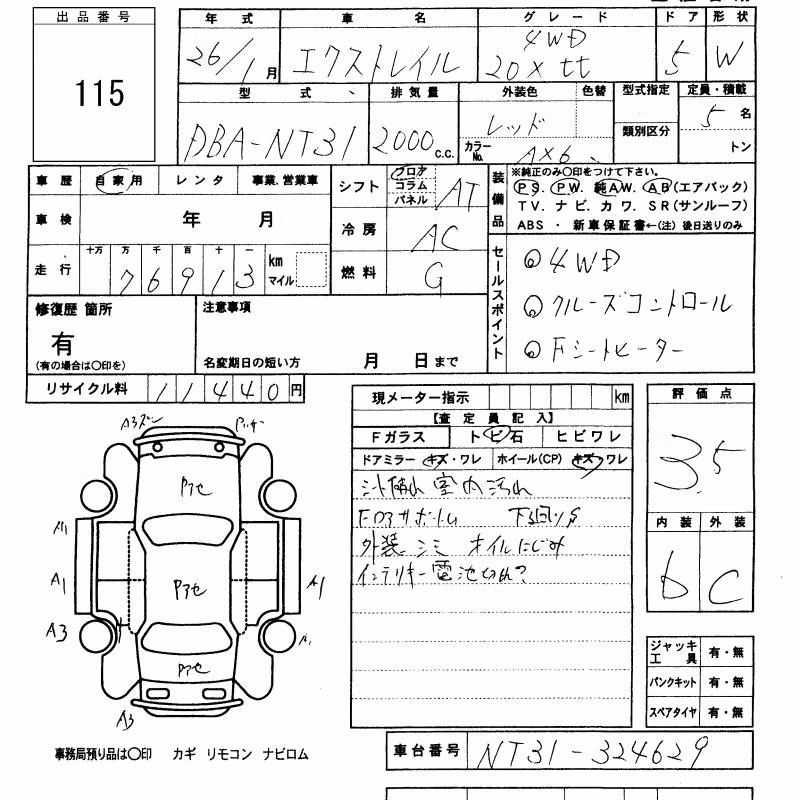 出品番号
115
年式 車名 グレード ドア 形状
26/1月 エクストレイル 4WD 20X tt 5 W
型式 排気量 外装色 色替 型式指定 定員・積載
DBA-NT31 2000c.c. レッド カラーNo. AX6 類別区分 5名 トン
車歴 自家用 レンタ 事業.営業車
シフト フロア コラム パネル AT
装備品 ※純正のみ〇印をつけて下さい。
PS. PW. 純AW. AB(エアバック)
TV. ナビ. カワ. SR(サンルーフ)
ABS ・ 新車保証書←(注) 後日送りのみ
車検 年 月
冷房 AC
走行 十万 万 千 百 十 一 76913 km マイル
燃料 G
セールスポイント
◎4WD
◎クルーズコントロール
◎Fシートヒーター
修復歴 箇所 注意事項
有
(有の場合は〇印を) 名変期日の短い方 月 日まで
リサイクル料 11440円
現メーター指示 km
評価点
3.5
【査定員記入】
Fガラス トビ石 ヒビワレ
ドアミラー キズ・ワレ ホイール(CP) キズ ワレ
室内汚れ
下回りS
外装シミ オイルにじみ
インテリキー電池切れ?
内装 外装
b C
A3
Pアセ
A1
Pアセ
A1
A3
Pアセ
A3
ジャッキ工具 有・無
パンクキット 有・無
スペアタイヤ 有・無
事務局預り品は〇印 カギ リモコン ナビロム
車台番号 NT31-324629